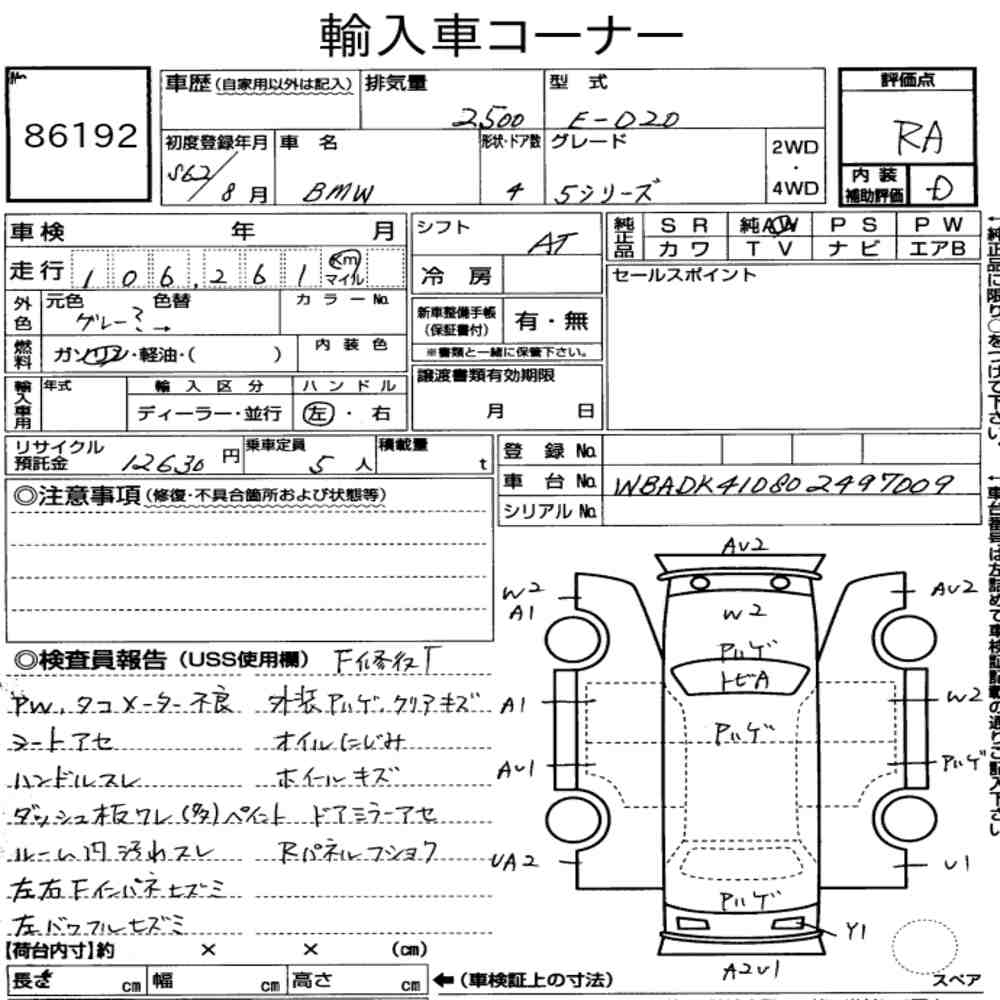 輸入車コーナー
No.
86192
車歴(自家用以外は記入) 排気量 型式
2500 E-D20
初度登録年月 車名 形状・ドア数 グレード
S62/8月 BMW 4 5シリーズ
2WD
・
4WD
評価点
RA
内装補助評価 D
車検 年 月
走行 106,261 Km マイル
外色 元色 色替 カラーNo.
グレー ミ →
燃料 ガソリン・軽油・( ) 内装色
輸入車用 年式 輸入区分 ハンドル
ディーラー・並行 左・右
シフト AT
冷房
新車整備手帳(保証書付) 有・無
※書類と一緒に保管下さい。
譲渡書類有効期限
月 日
純正品 SR 純AW PS PW
カワ TV ナビ エアB
セールスポイント
←純正品に限り○をつけて下さい。
リサイクル預託金 12630円 乗車定員 5人 積載量 t
登録No.
車台No. WBADK410802497009
シリアルNo.
←車台番号は左詰めで車検証記載の通りご記入下さい
◎注意事項(修復・不具合箇所および状態等)
◎検査員報告(USS使用欄) F修復T
PW、タコメーター不良 外装Pハゲ、クリアキズ
シートアセ オイルにじみ
ハンドルスレ ホイールキズ
ダッシュ板ワレ(多)ペイント ドアミラーアセ
ルーム内汚れスレ Rパネルフショク
左右Fインパネヒズミ
左バッフルヒズミ
AU2
W2
A1
AU2
W2
Pハゲ
トビA
A1
W2
Pハゲ
AU1
Pハゲ
UA2
U1
Pハゲ
Y1
A2U1
スペア
【荷台内寸】約 × × (cm)
長さ cm 幅 cm 高さ cm ←(車検証上の寸法)